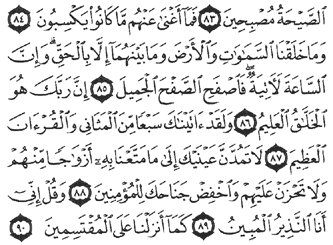 ٱلصَّيْحَةُ مُصْبِحِينَ ٨٣ فَمَآ أَغْنَىٰ عَنْهُم مَّا كَانُوا۟ يَكْسِبُونَ ٨٤
وَمَا خَلَقْنَا ٱلسَّمَٰوَٰتِ وَٱلْأَرْضَ وَمَا بَيْنَهُمَآ إِلَّا بِٱلْحَقِّ ۗ وَإِنَّ
ٱلسَّاعَةَ لَءَاتِيَةٌ ۖ فَٱصْفَحِ ٱلصَّفْحَ ٱلْجَمِيلَ ٨٥ إِنَّ رَبَّكَ هُوَ
ٱلْخَلَّٰقُ ٱلْعَلِيمُ ٨٦ وَلَقَدْ ءَاتَيْنَٰكَ سَبْعًا مِّنَ ٱلْمَثَانِى وَٱلْقُرْءَانَ
ٱلْعَظِيمَ ٨٧ لَا تَمُدَّنَّ عَيْنَيْكَ إِلَىٰ مَا مَتَّعْنَا بِهِۦٓ أَزْوَٰجًا مِّنْهُمْ
وَلَا تَحْزَنْ عَلَيْهِمْ وَٱخْفِضْ جَنَاحَكَ لِلْمُؤْمِنِينَ ٨٨ وَقُلْ إِنِّىٓ
أَنَا ٱلنَّذِيرُ ٱلْمُبِينُ ٨٩ كَمَآ أَنزَلْنَا عَلَى ٱلْمُقْتَسِمِينَ ٩٠